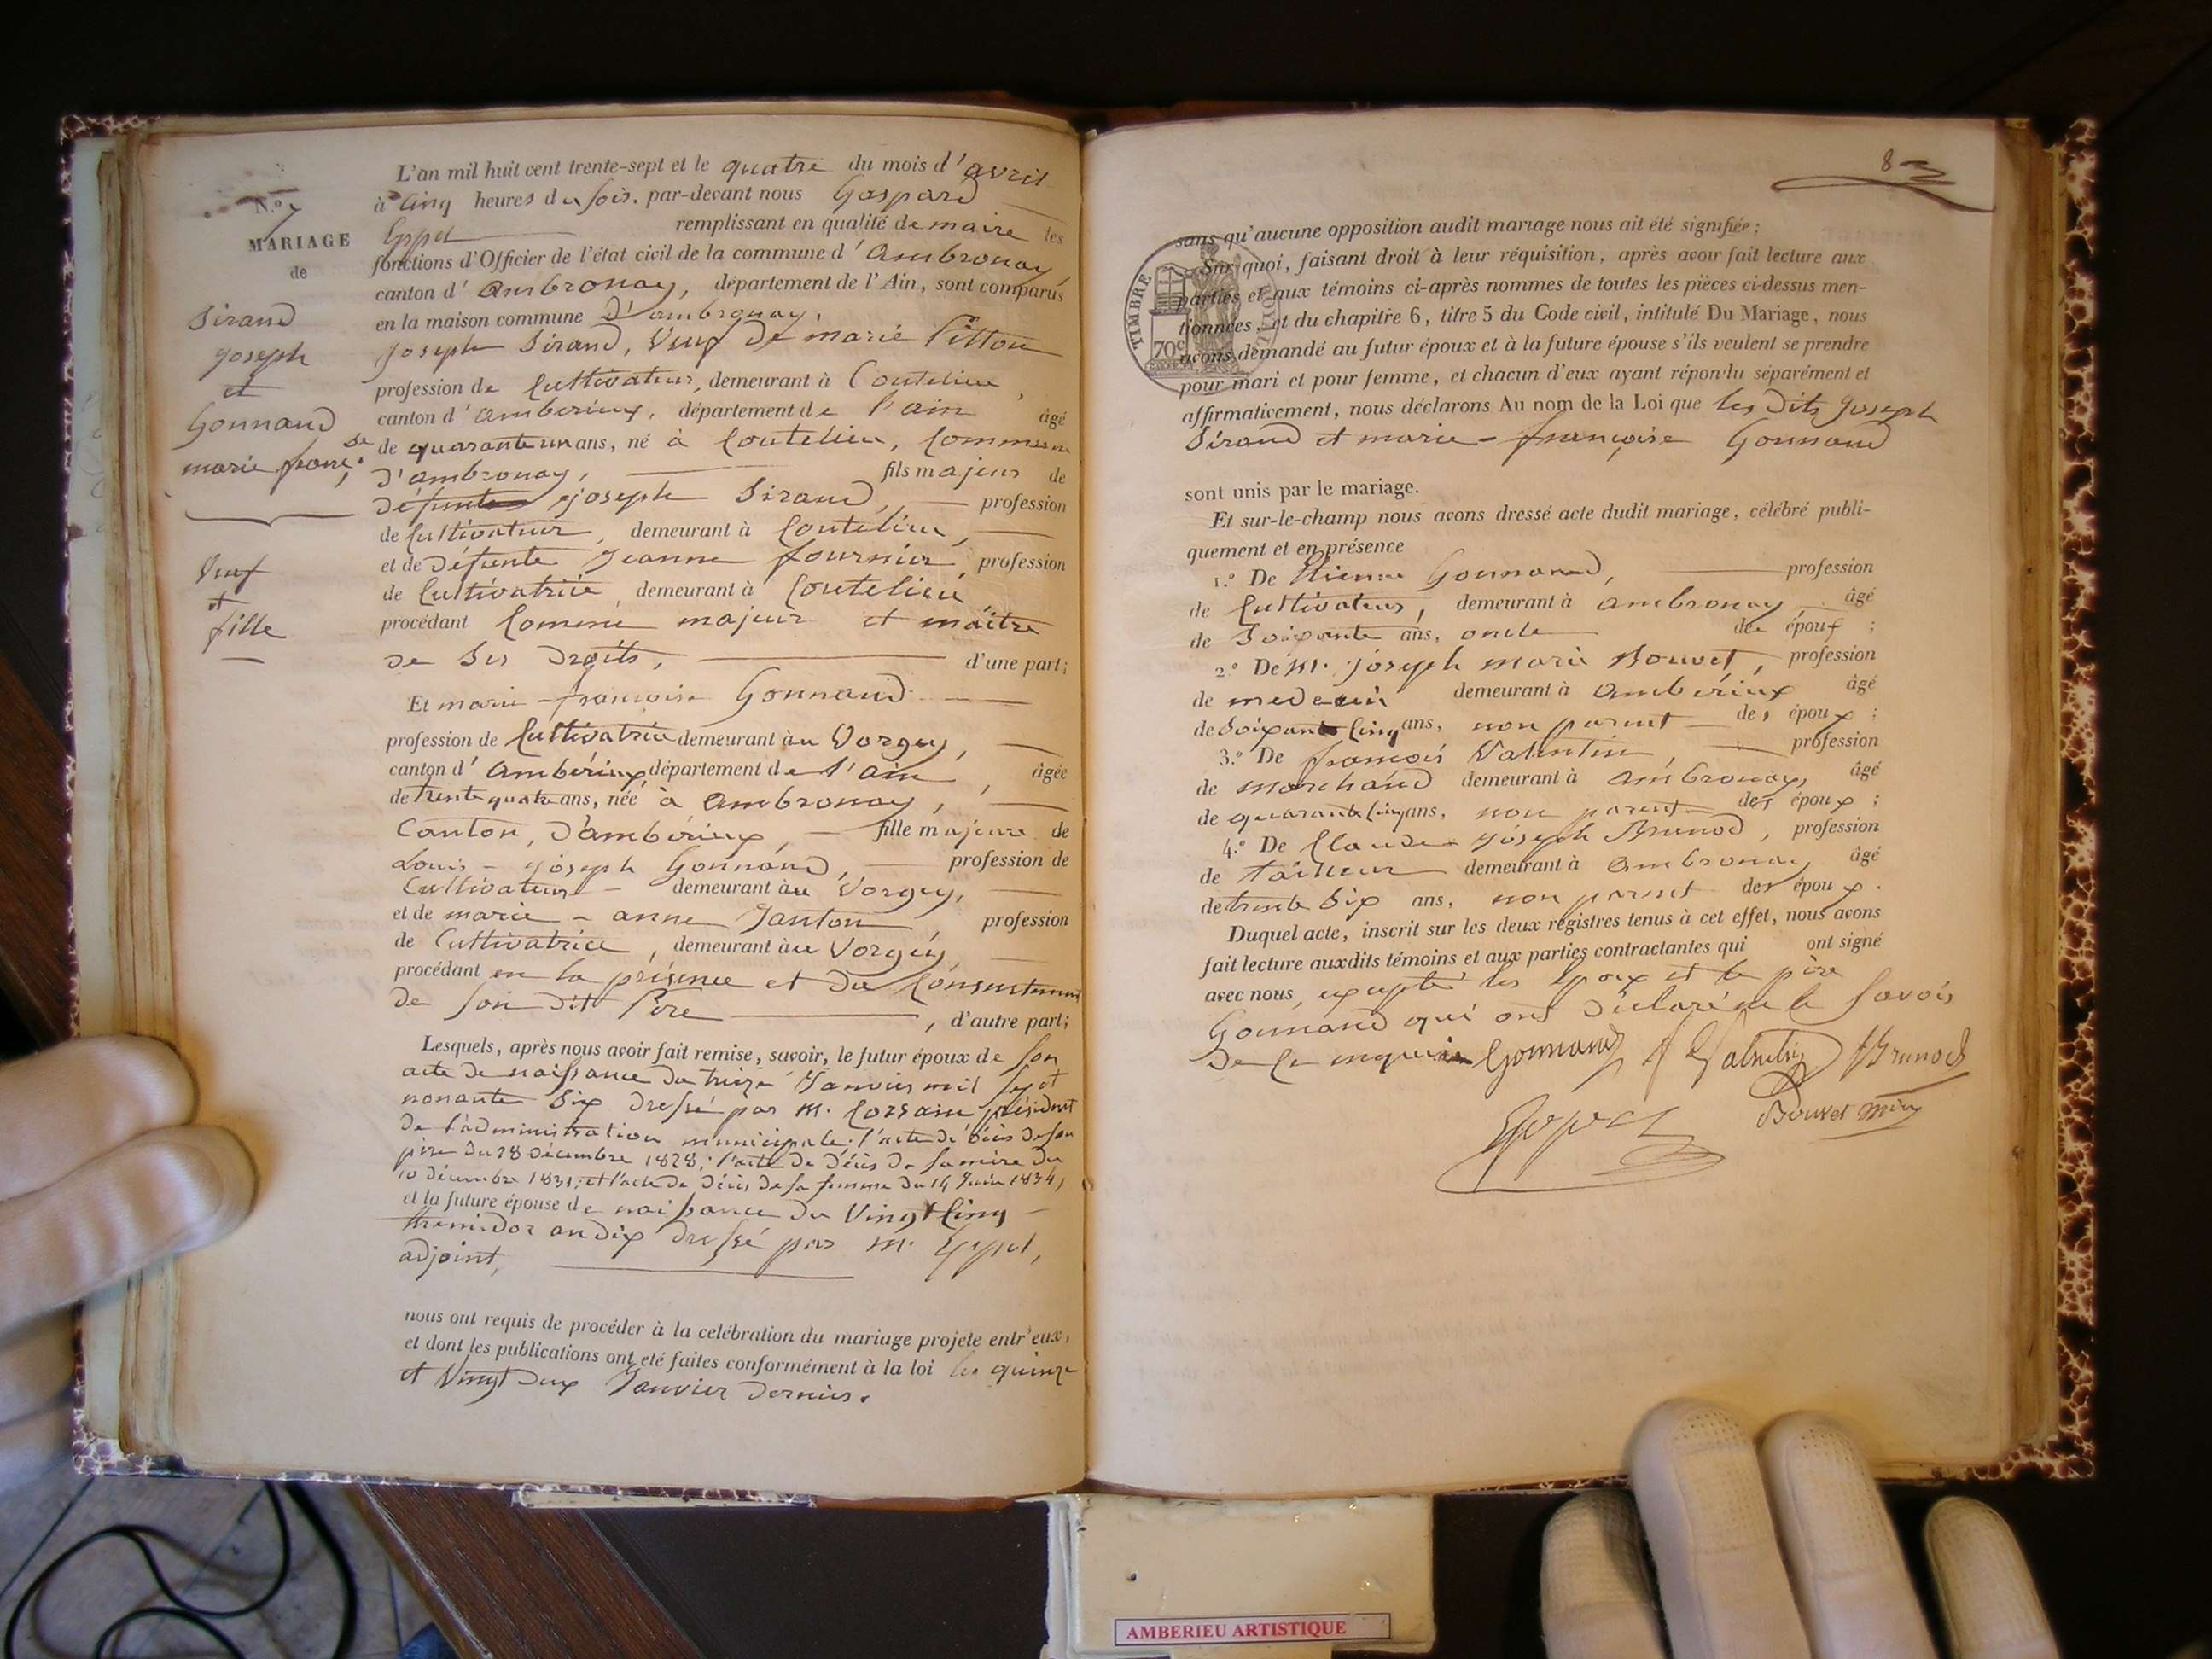 N.o 7
MARIAGE
de
Sirand
joseph
et
Gonnand
marie franç.se
Veuf
et
fille
L'an mil huit cent trente-sept et le quatre du mois d'avril
à cinq heures du soir. par-devant nous Gaspard
Eppel remplissant en qualité de maire les
fonctions d'Officier de l'état civil de la commune d'Ambronay,
canton d'Ambronay, département de l'Ain, sont comparus
en la maison commune d'ambronay,
joseph Sirand, Veuf de marie Pitton
profession de Cultivateur, demeurant à Coutelieu,
canton d'ambérieux, département de l'ain âgé
de quarante un ans, né à Coutelieu, Commune
d'ambronay, fils majeur de
défunt joseph Sirand, profession
de Cultivateur, demeurant à Coutelieu,
et de Défunte Jeanne fournier, profession
de Cultivatrice, demeurant à Coutelieu,
procédant Comme majeur et maître
de Ses Droits, d'une part;
Et marie-françoise Gonnand
profession de Cultivatrice demeurant au Vorgey,
canton d'Ambérieux, département de l'ain, âgée
de trente quatre ans, née à Ambronay,
Canton, D'ambérieux, fille majeure de
Louis-joseph Gonnand, profession de
Cultivateur demeurant au Vorgey,
et de marie-anne Janton, profession
de Cultivatrice, demeurant au Vorgey,
procédant en la présence et du Consentement
de Son dit Père, d'autre part;
Lesquels, après nous avoir fait remise, savoir, le futur époux de Son
acte de naissance du treize Janvier mil sept
nonante Six dressé par m. Corsain président
de l'administration municipale; l'acte de décès de son
père du 28 Décembre 1828; l'acte de décès de sa mère du
10 décembre 1831; et l'acte de décès de sa femme du 14 Juin 1834,
et la future épouse de naissance du Vingt Cinq
thermidor an dix dressé par m. Eppel,
adjoint,
nous ont requis de procéder à la celébration du mariage projete entr'eux,
et dont les publications ont été faites conformément à la loi les quinze
et Vingt deux Janvier dernier.
83
TIMBRE
70c
sans qu'aucune opposition audit mariage nous ait été signifiée;
Sur quoi, faisant droit à leur réquisition, après avoir fait lecture aux
parties et aux témoins ci-après nommes de toutes les pièces ci-dessus men-
tionnées, et du chapitre 6, titre 5 du Code civil, intitulé Du Mariage, nous
avons demandé au futur époux et à la future épouse s'ils veulent se prendre
pour mari et pour femme, et chacun d'eux ayant répondu séparément et
affirmativement, nous déclarons Au nom de la Loi que les Dits Joseph
Sirand et marie-françoise Gonnand
sont unis par le mariage.
Et sur-le-champ nous avons dressé acte dudit mariage, célébré publi-
quement et en présence
1.o De Etienne Gonnand, profession
de Cultivateur, demeurant à ambronay, âgé
de Soixante ans, oncle de épouse;
2.o De M. joseph marie Bouvet, profession
de medecin demeurant à Ambérieux âgé
de Soixante Cinq ans, non parent des époux;
3.o De françois Valentin profession
de marchand demeurant à Ambronay, âgé
de quarante Cinq ans, non parent des époux;
4.o De Claude joseph Brunod, profession
de tailleur demeurant à Ambronay âgé
de trente Six ans, non parent des époux.
Duquel acte, inscrit sur les deux régistres tenus à cet effet, nous avons
fait lecture auxdits témoins et aux parties contractantes qui ont signé
avec nous, excepté les époux et le père
Gonnand qui ont déclaré ne le Savoir
De ce enquis Gonnand f Valentin Brunod
Eppel Bouvet
AMBERIEU ARTISTIQUE